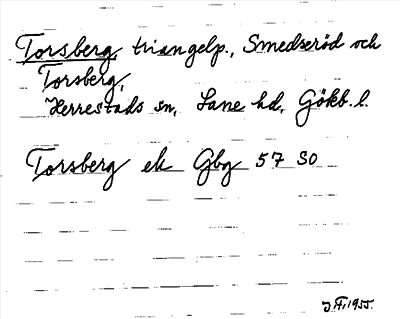 Torsberg, triangelp., Smedseröd och
Torsberg,
Herrestads sn, Lane hd, Gökb. l.
Torsberg ek Gbg 57 SO
J.F. 1955.